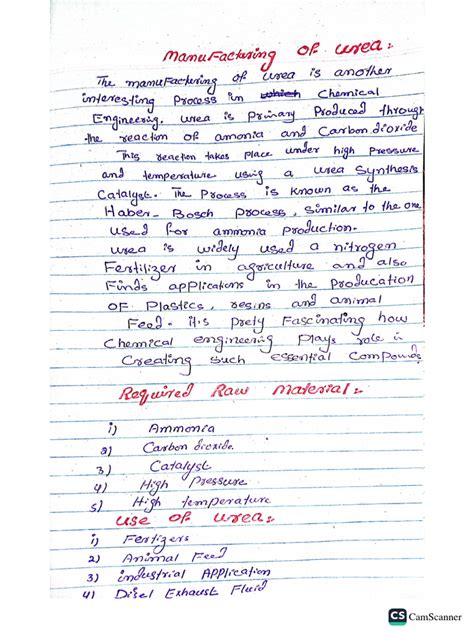 Manufacturing of urea:
The manufacturing of urea is another
interesting Process in which Chemical
Engineering. urea is Primary Produced through
the reaction of amonia and Carbon dioxide
This reaction takes Place under high Pressure
and temperature using a urea Synthesis
Catalyst. The Process is known as the
Haber-Bosch process, similar to the one
used for ammonia production.
urea is widely used a nitrogen
Fertilizer in agriculture and also
Finds applications in the Producation
of Plastics, resins and animal
Feed. it's prety Fascinating how
Chemical engineering Plays role in
Creating such essential Compounds
Required Raw Material:
i) Ammonia
2) Carbon dioxide.
3) Catalyst
4) High Pressure
5) High temperature
use of urea:
i) Fertizers
2) Animal Feed
3) industrial Application
4) Disel Exhaust Fluid
CS CamScanner